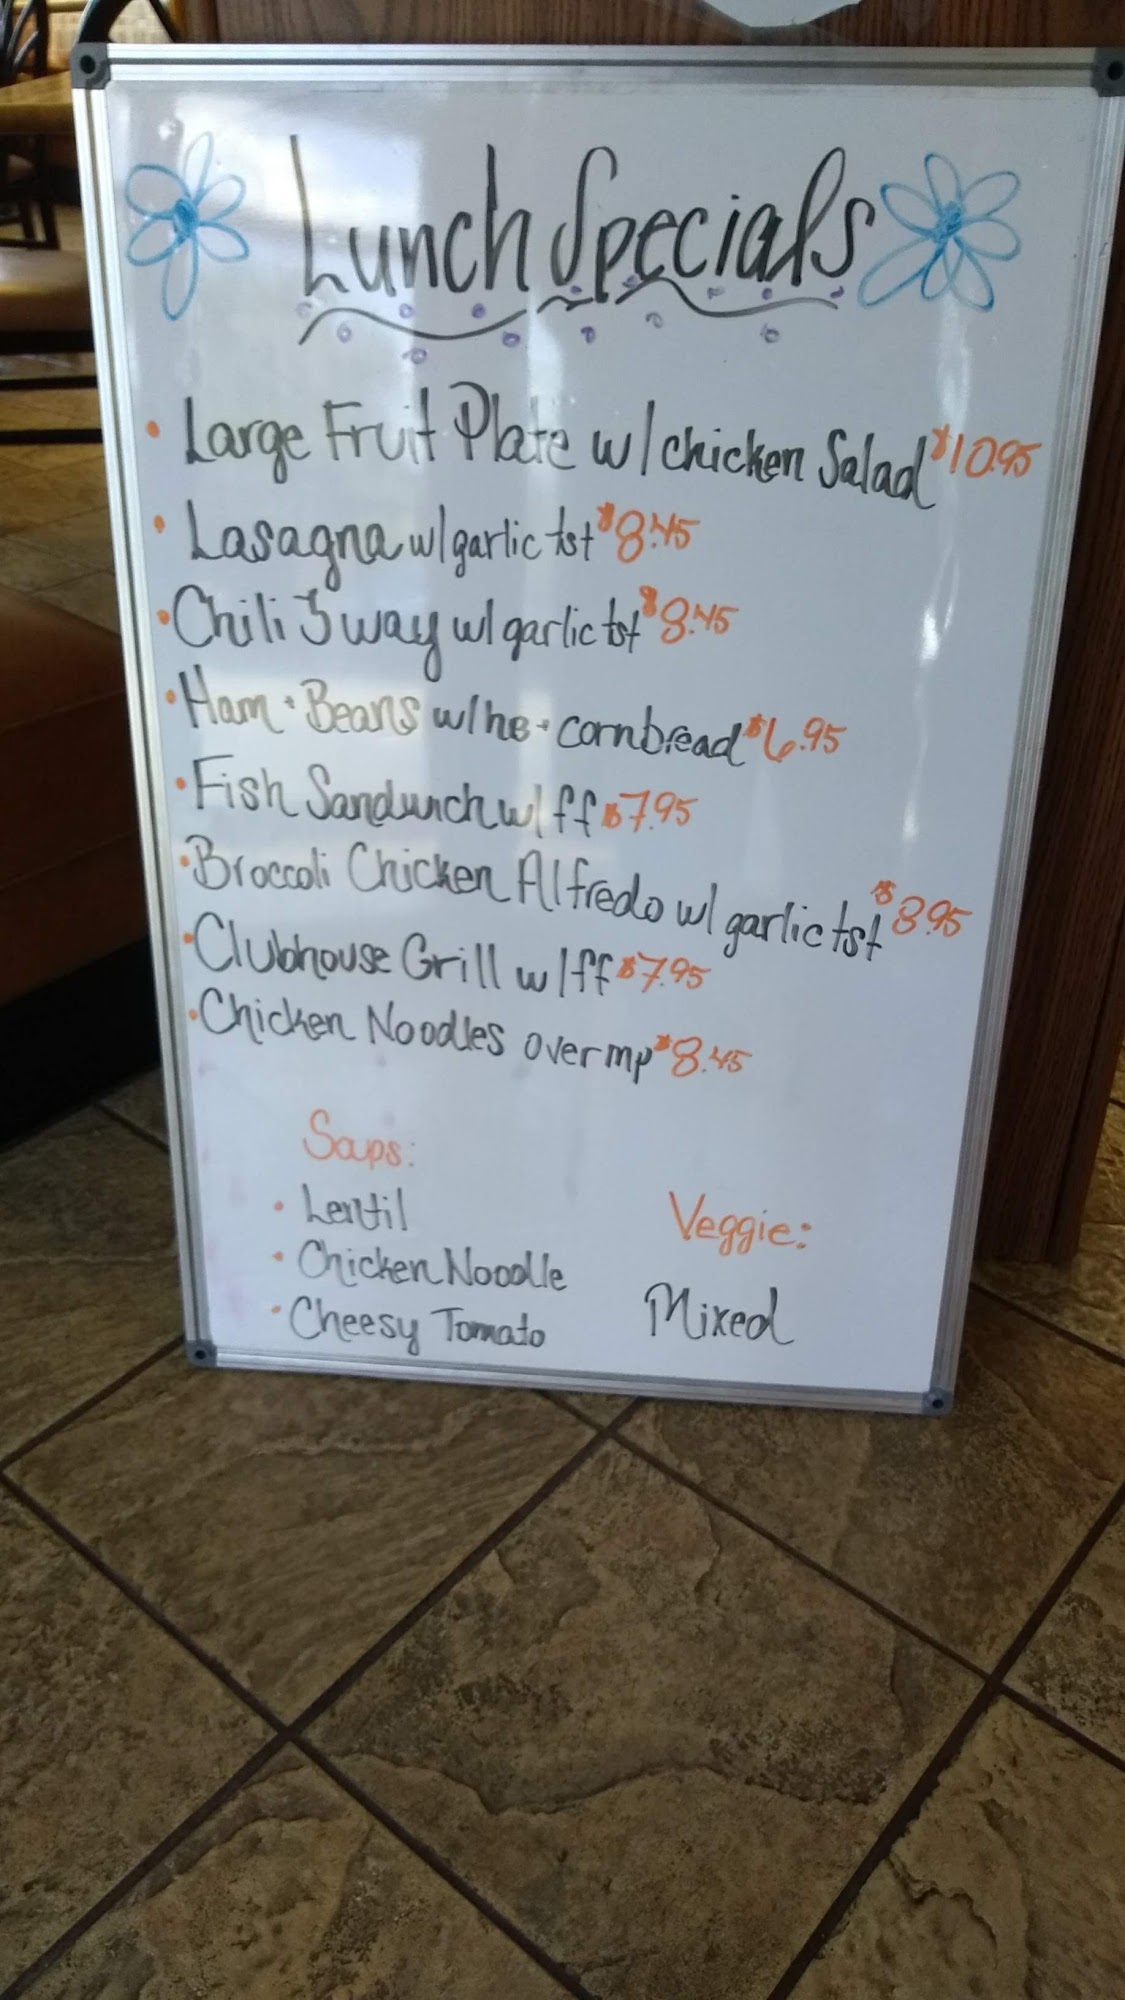 Lunch Specials
• Large Fruit Plate w/ chicken Salad $10.95
• Lasagna w/ garlic tst $8.45
• Chili 3 way w/ garlic tst $8.45
• Ham + Beans w/ h.b. + cornbread $6.95
• Fish Sandwich w/ ff $7.95
• Broccoli Chicken Alfredo w/ garlic tst $8.95
• Clubhouse Grill w/ ff $7.95
• Chicken Noodles over mp $8.45
Soups:
• Lentil
• Chicken Noodle
• Cheesy Tomato
Veggie:
Mixed